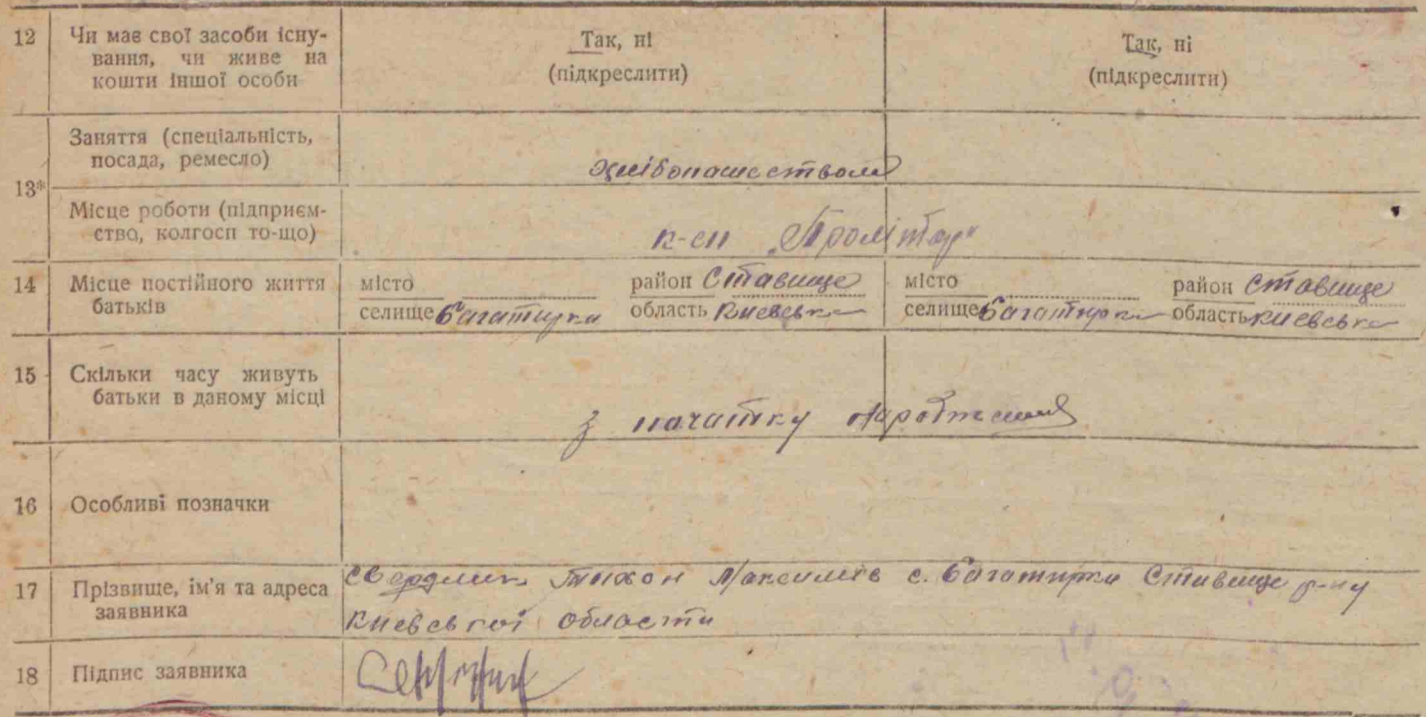 12 Чи має свої засоби існу-
вання, чи живе на
кошти іншої особи
Так, ні
(підкреслити)
Так, ні
(підкреслити)
13*
Заняття (спеціальність,
посада, ремесло)
хлібопашеством
Місце роботи (підприєм-
ство, колгосп то-що)
к-сп
14 Місце постійного життя
батьків
місто
селище Багатирка
район Ставище
область Киевська
місто
селище Багатирка
район Ставище
область Киевська
15 Скільки часу живуть
батьки в даному місці
з початку нарождения
16 Особливі позначки
17 Прізвище, ім'я та адреса
заявника
Свердлик Тихон Максимів с. Багатирка Ставище р-ну
Киевської области
18 Підпис заявника